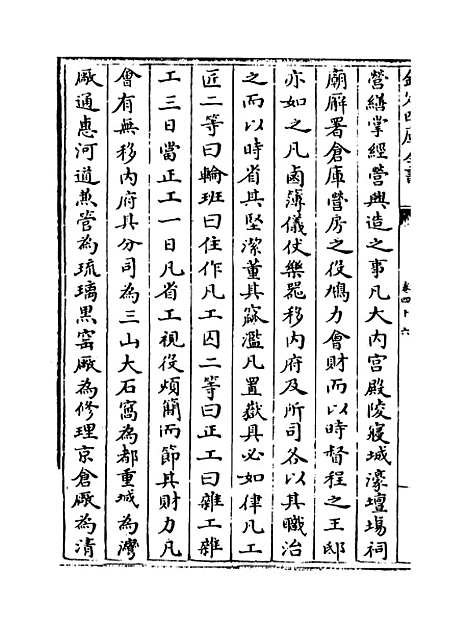 欽定四庫全書
卷四十六
營繕掌經營興造之事凡大内宫殿陵寢城濠壇場祠
廟廨署倉庫營房之役鳩力會財而以時督程之王邸
亦如之凡鹵簿儀仗樂器移内府及所司各以其職治
之而以時省其堅潔董其窳濫凡置獄具必如律凡工
匠二等曰輪班曰住作凡工囚二等曰正工曰雜工雜
工三日當正工一日凡省工視役煩簡而節其財力凡
會有無移内府其分司為三山大石窩為都重城為灣
厰通惠河道兼管為琉璃黒窑厰為修理京倉厰為清